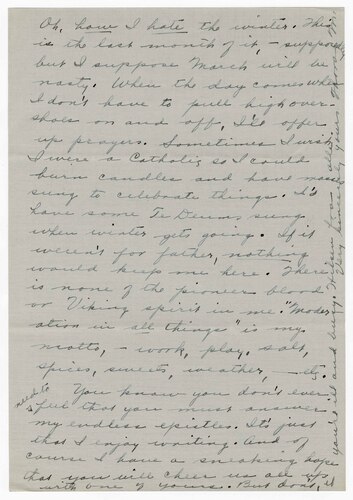 Oh, how I hate the winter. This
is the last month of it, - supposedly
but I suppose March will be
nasty. When the day comes when
I don't have to pull high over-
shoes on and off, I'll offer
up prayers. Sometimes I wish
I were a Catholic so I could
burn candles and have masses
sung to celebrate things. I'd
have some Te Deums sung
when winter gets going. If it
weren't for father, nothing
would keep me here. There
is none of the pioneer blood
or Viking spirit in me. "Moder-
ation in all things" is my
motto, - work, play, salt,
spices, sweets, weather, - etc.
You know you don't ever
need to
feel that you must answer
my endless epistles. It's just
that I enjoy writing. And of
course I have a sneaking hope
that you will cheer us all up
with one of yours. But don't, if
you're ill and busy.
Very sincerely yours